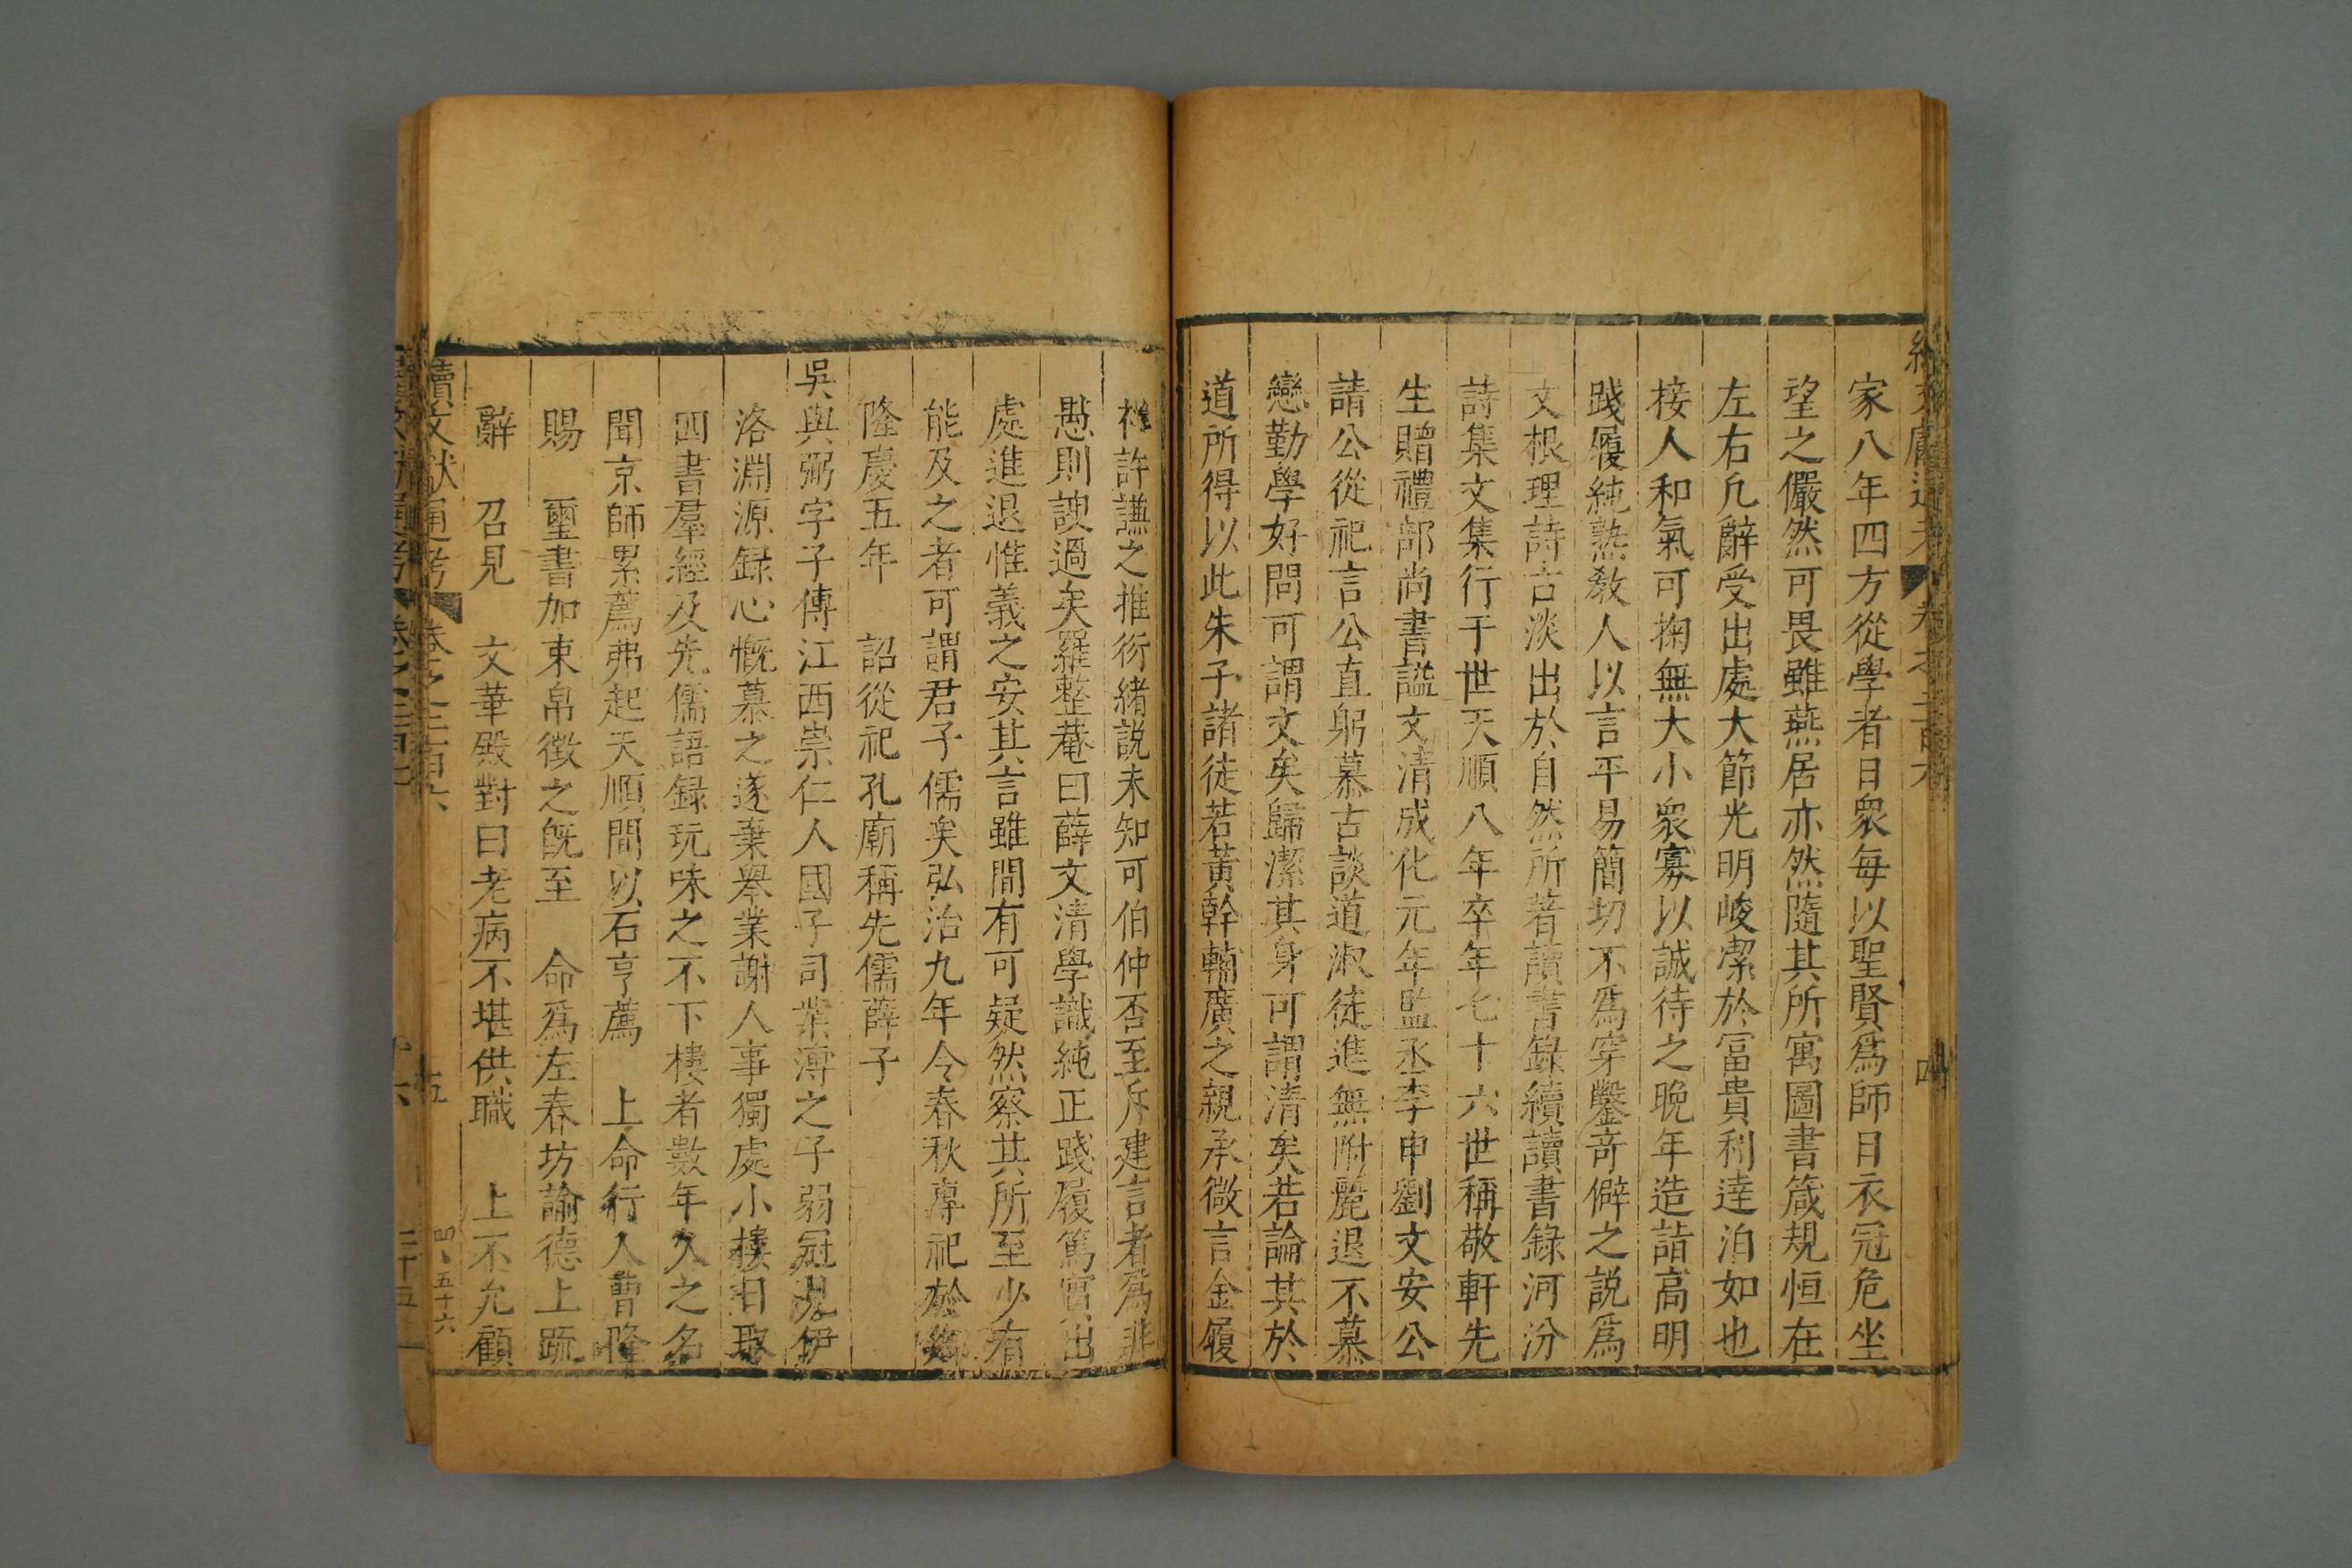 家八年四方從學者日衆每以聖賢爲師日衣冠危坐
望之儼然可畏雖燕居亦然隨其所寓圖書箴規恒在
左右凡辭受出處大節光明峻潔於冨貴利達泊如也
接人和氣可掬無大小衆寡以誠待之晚年造詣高明
踐履純熟敎人以言平易簡切不爲穿鑿竒僻之説爲
文根理詩古淡出於自然所著讀書錄續讀書錄河汾
詩集文集行于世天順八年卒年七十六世稱敬軒先
生贈禮部尚書謚文清成化元年監丞李申劉文安公
請公從祀言公直躬慕古談道淑徒進無附麗退不慕
戀勤學好問可謂文矣歸潔其身可謂清矣若論其於
道所得以此朱子諸徒若黃幹輔廣之親承微言金履
祥許謙之推衍緒説未知可伯仲否至斥建言者爲非
愚則諛過矣羅整菴曰薛文清學識純正踐履篤實出
處進退惟義之安其言雖間有可疑然察其所至少有
能及之者可謂君子儒矣弘治九年令春秋專祀於鄉
隆慶五年　詔從祀孔廟稱先儒薛子
吳與弼字子傳江西崇仁人國子司業溥之子弱冠見伊
洛淵源録心慨慕之遂棄舉業謝人事獨處小樓日取
四書羣經及先儒語録玩味之不下樓者數年久之名
聞京師累薦弗起天順間以石亨薦　上命行人曹隆
賜　璽書加束帛徵之旣至　命爲左春坊諭德上疏
辭　召見　文華殿對曰老病不堪供職　上不允顧
續文獻通考　卷之二百六
五
四、五十六